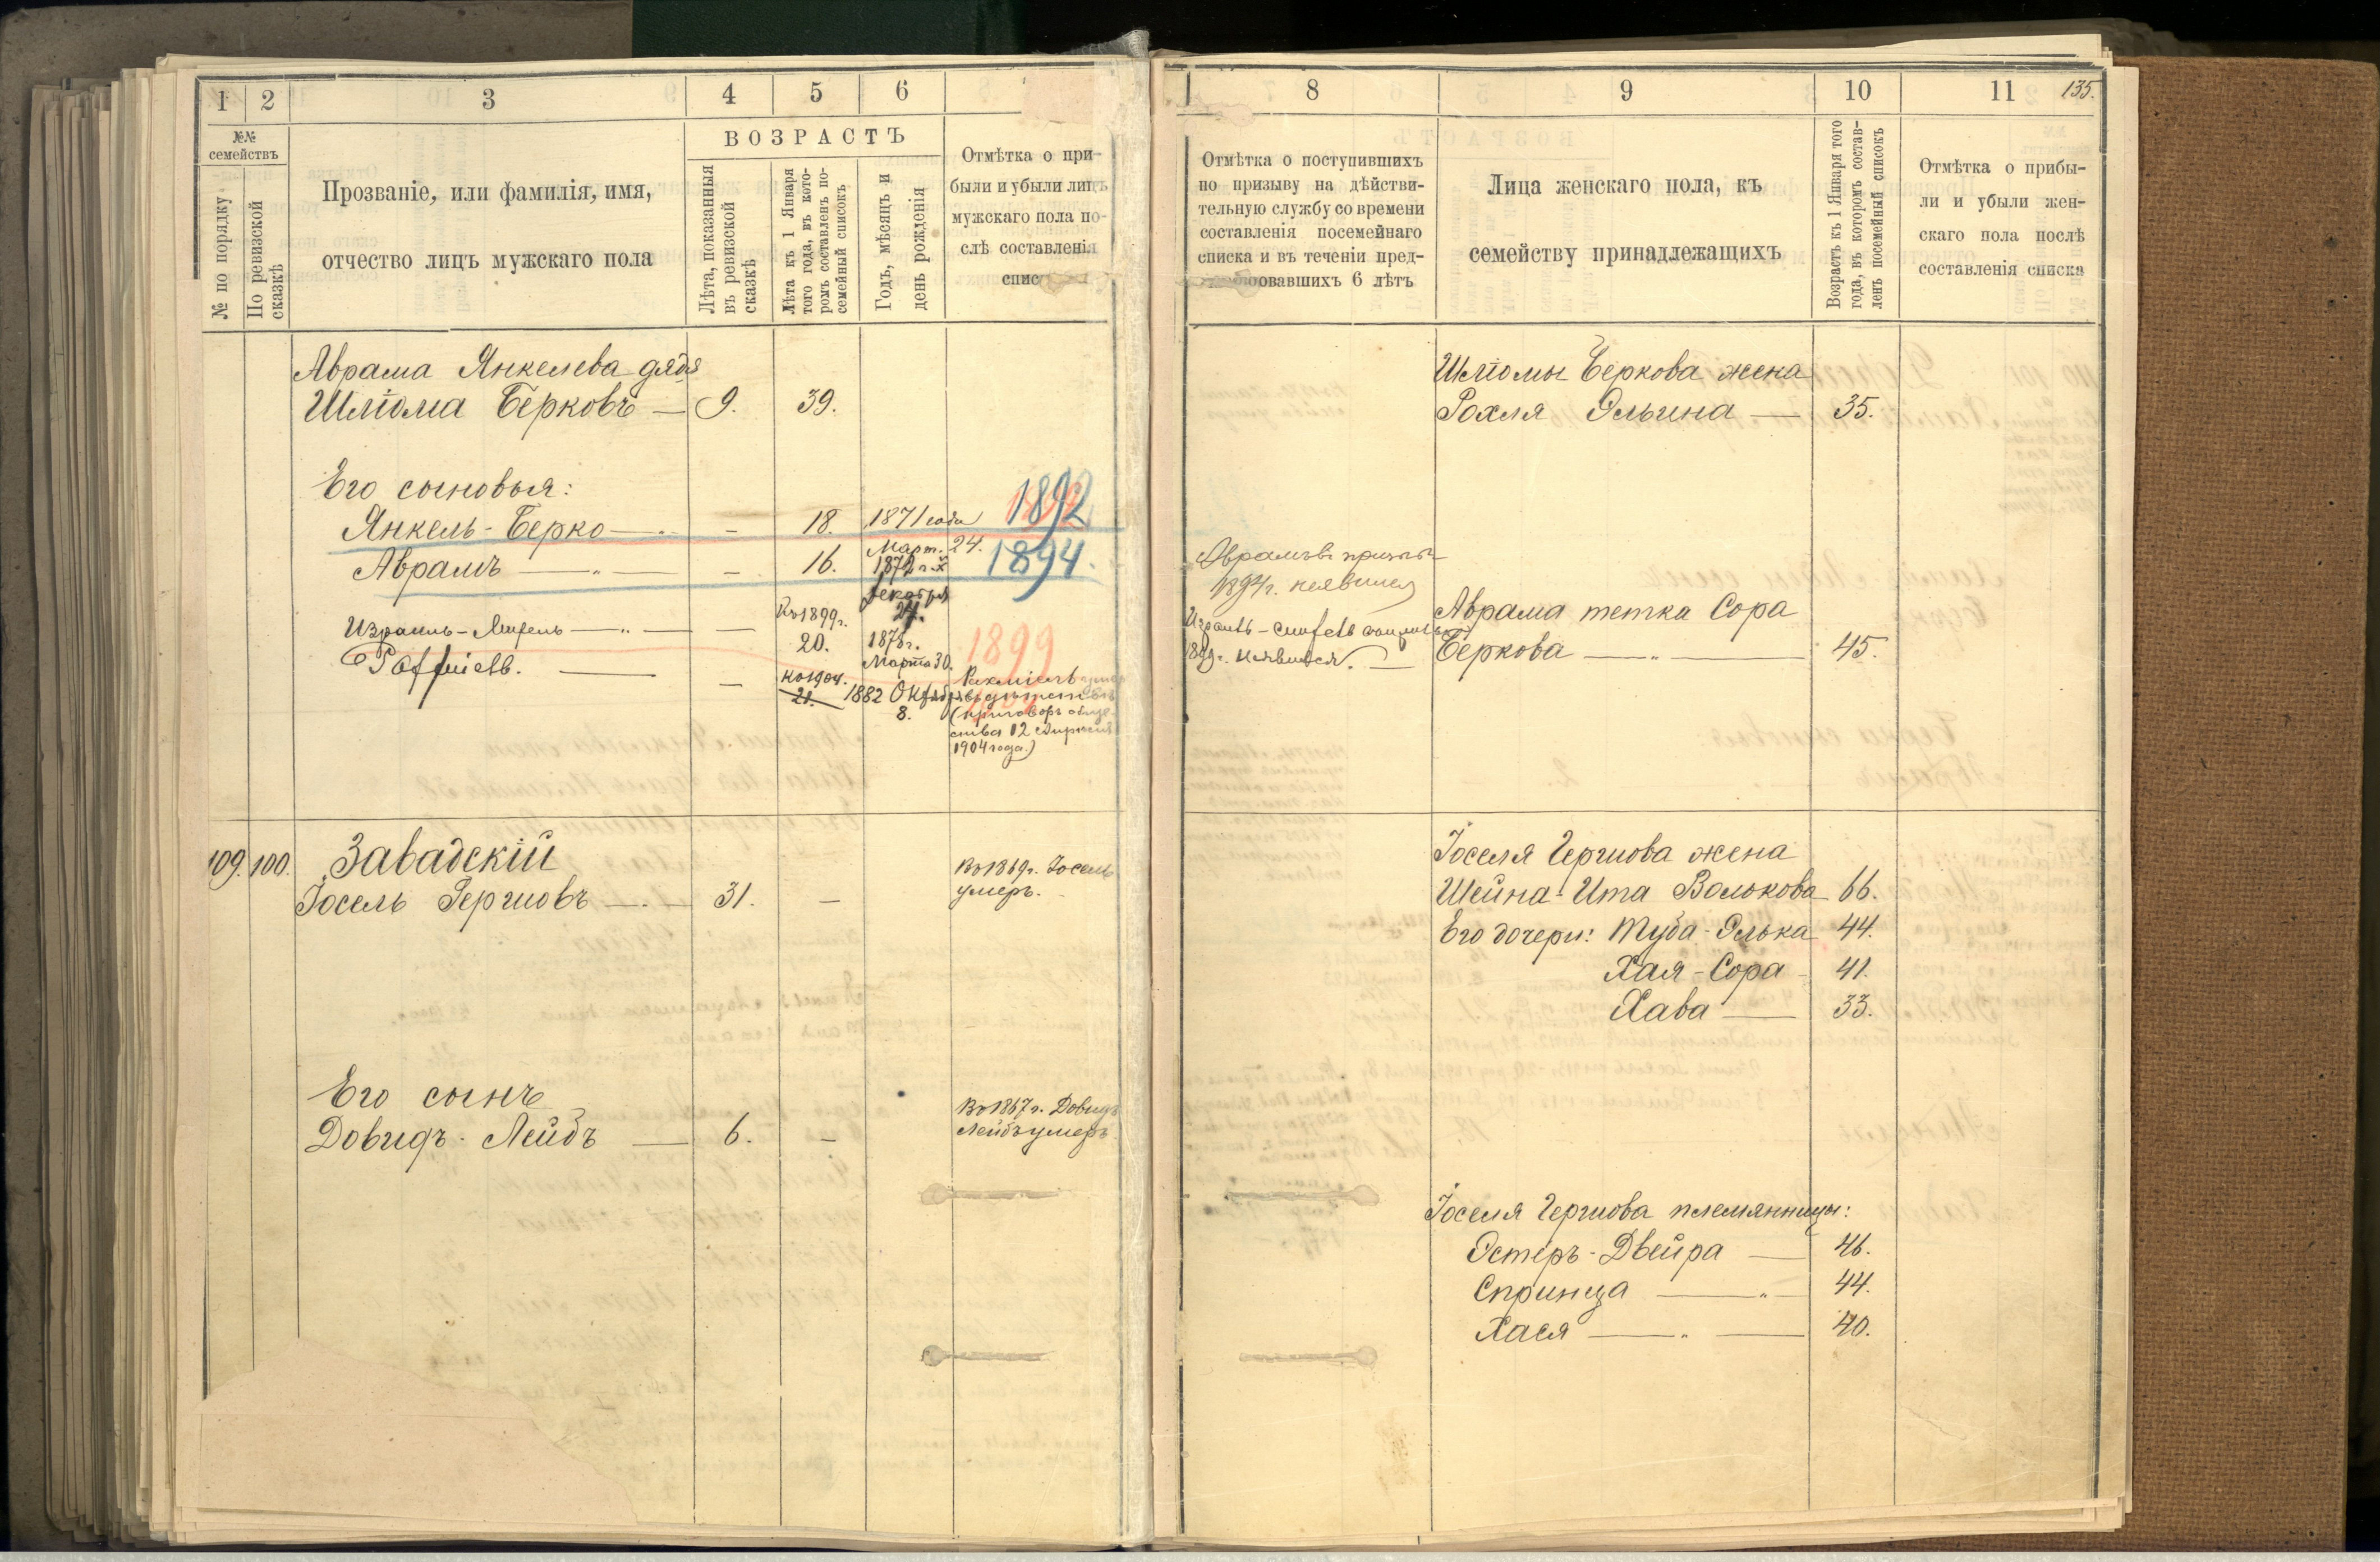 1 2 3 4 5 6
№№ семействъ
№ по порядку
По ревизской сказкѣ
Прозваніе, или фамилія, имя,
отчество лицъ мужскаго пола
ВОЗРАСТЪ
Лѣта, показанныя
въ ревизской
сказкѣ
Лѣта къ 1 Января
того года, въ кото-
ромъ составленъ по-
семейный списокъ
Годъ, мѣсяцъ и
день рожденія
Отмѣтка о при-
были и убыли лицъ
мужскаго пола по-
слѣ составленія
спис
Аврама Янкелева дядя
Шліома Берковъ — 9. 39.
Его сыновья:
Янкель-Берко — 18. 1871 года
Март. 24.
1892
Аврамъ — 16. 1872 г.
декабря
24.
1894.
Къ 1899 г.
Израиль — 20. 1878 г.
Марта 30.
1899
къ 1904.
21. 1882 Октяб
8.
Рахміель
въ дѣтст
(приговоръ обще-
ства 12 Апрѣля
1904 года.)
109. 100. Завадскій
Іосель Гершовъ — 31. —
Въ 1869 г. Іосель
умеръ.
Его сынъ
Довидъ-Лейбъ — 6. —
Въ 1867 г. Довидъ
Лейбъ умеръ
8 9 10 11 135.
Отмѣтка о поступившихъ
по призыву на дѣйстви-
тельную службу со времени
составленія посемейнаго
списка и въ теченіи пред-
овавшихъ 6 лѣтъ
Лица женскаго пола, къ
семейству принадлежащихъ
Возрастъ къ 1 Января того
года, въ которомъ состав-
ленъ посемейный списокъ
Отмѣтка о прибы-
ли и убыли жен-
скаго пола послѣ
составленія списка
Шліомы Беркова жена
Рохля Эльина — 35.
Аврамъ призыв
1894 г. неявился
Израиль
1899 г. неявился. —
Аврама тетка Сора
Беркова — 45.
Іоселя Гершова жена
Шейна-Ита Волькова 66.
Его дочери: Туба-Элька 44.
Хая-Сора 41.
Хава — 33.
Іоселя Гершова племянницы:
Эстеръ-Двейра — 46.
Спринца — 44.
Хася — 40.